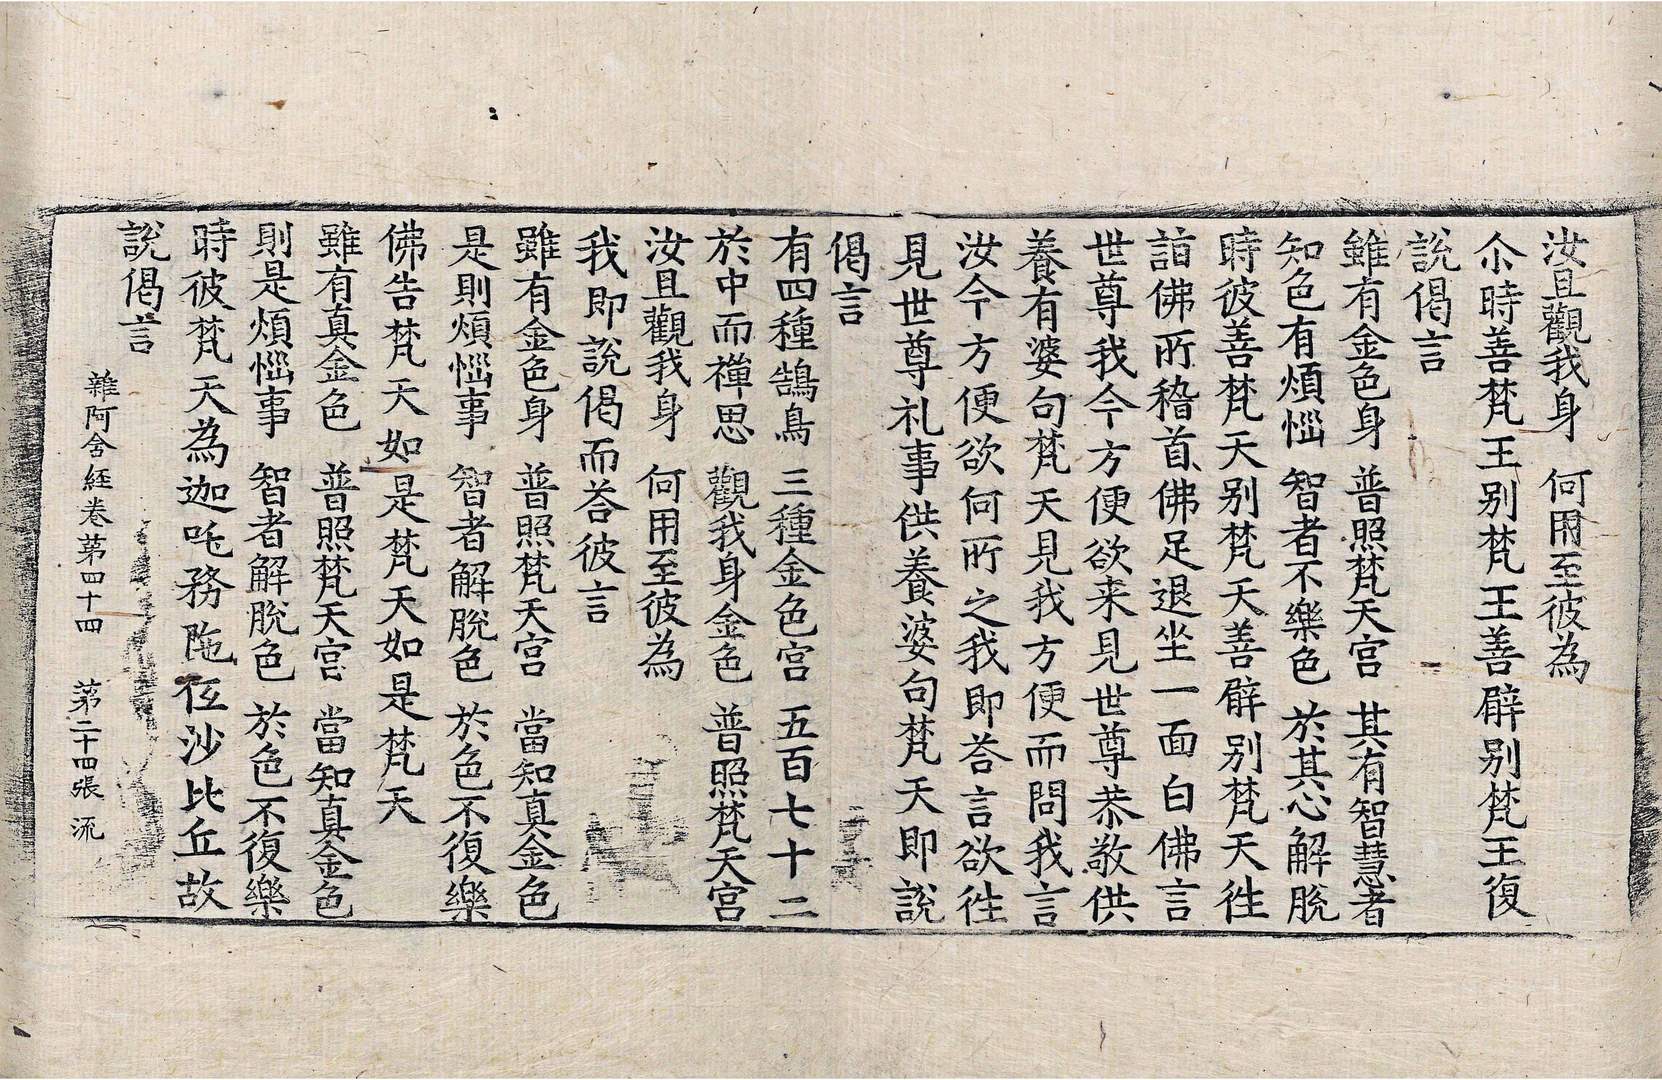 汝且觀我身　何用至彼為
尒時善梵王别梵王善臂别梵王復
說偈言
雖有金色身　普照梵天宫　其有智慧者
知色有煩惱　智者不樂色　於其心解脫
時彼善梵天别梵天善臂别梵天徃
詣佛所稽首佛足退坐一面白佛言
世尊我今方便欲来見世尊恭敬供
養有婆句梵天見我方便而問我言
汝今方便欲何所之我即荅言欲徃
見世尊礼事供養婆句梵天即說
偈言
有四種鵠鳥　三種金色宫　五百七十二
於中而禪思　觀我身金色　普照梵天宫
汝且觀我身　何用至彼為
我即說偈而荅彼言
雖有金色身　普照梵天宫　當知真金色
是則煩惱事　智者解脫色　於色不復樂
佛告梵天如是梵天如是梵天
雖有真金色　普照梵天宫　當知真金色
則是煩惱事　智者解脫色　於色不復樂
時彼梵天為迦吒務陁伍沙比丘故
說偈言
雜阿含経卷第四十四　第二十四張　流